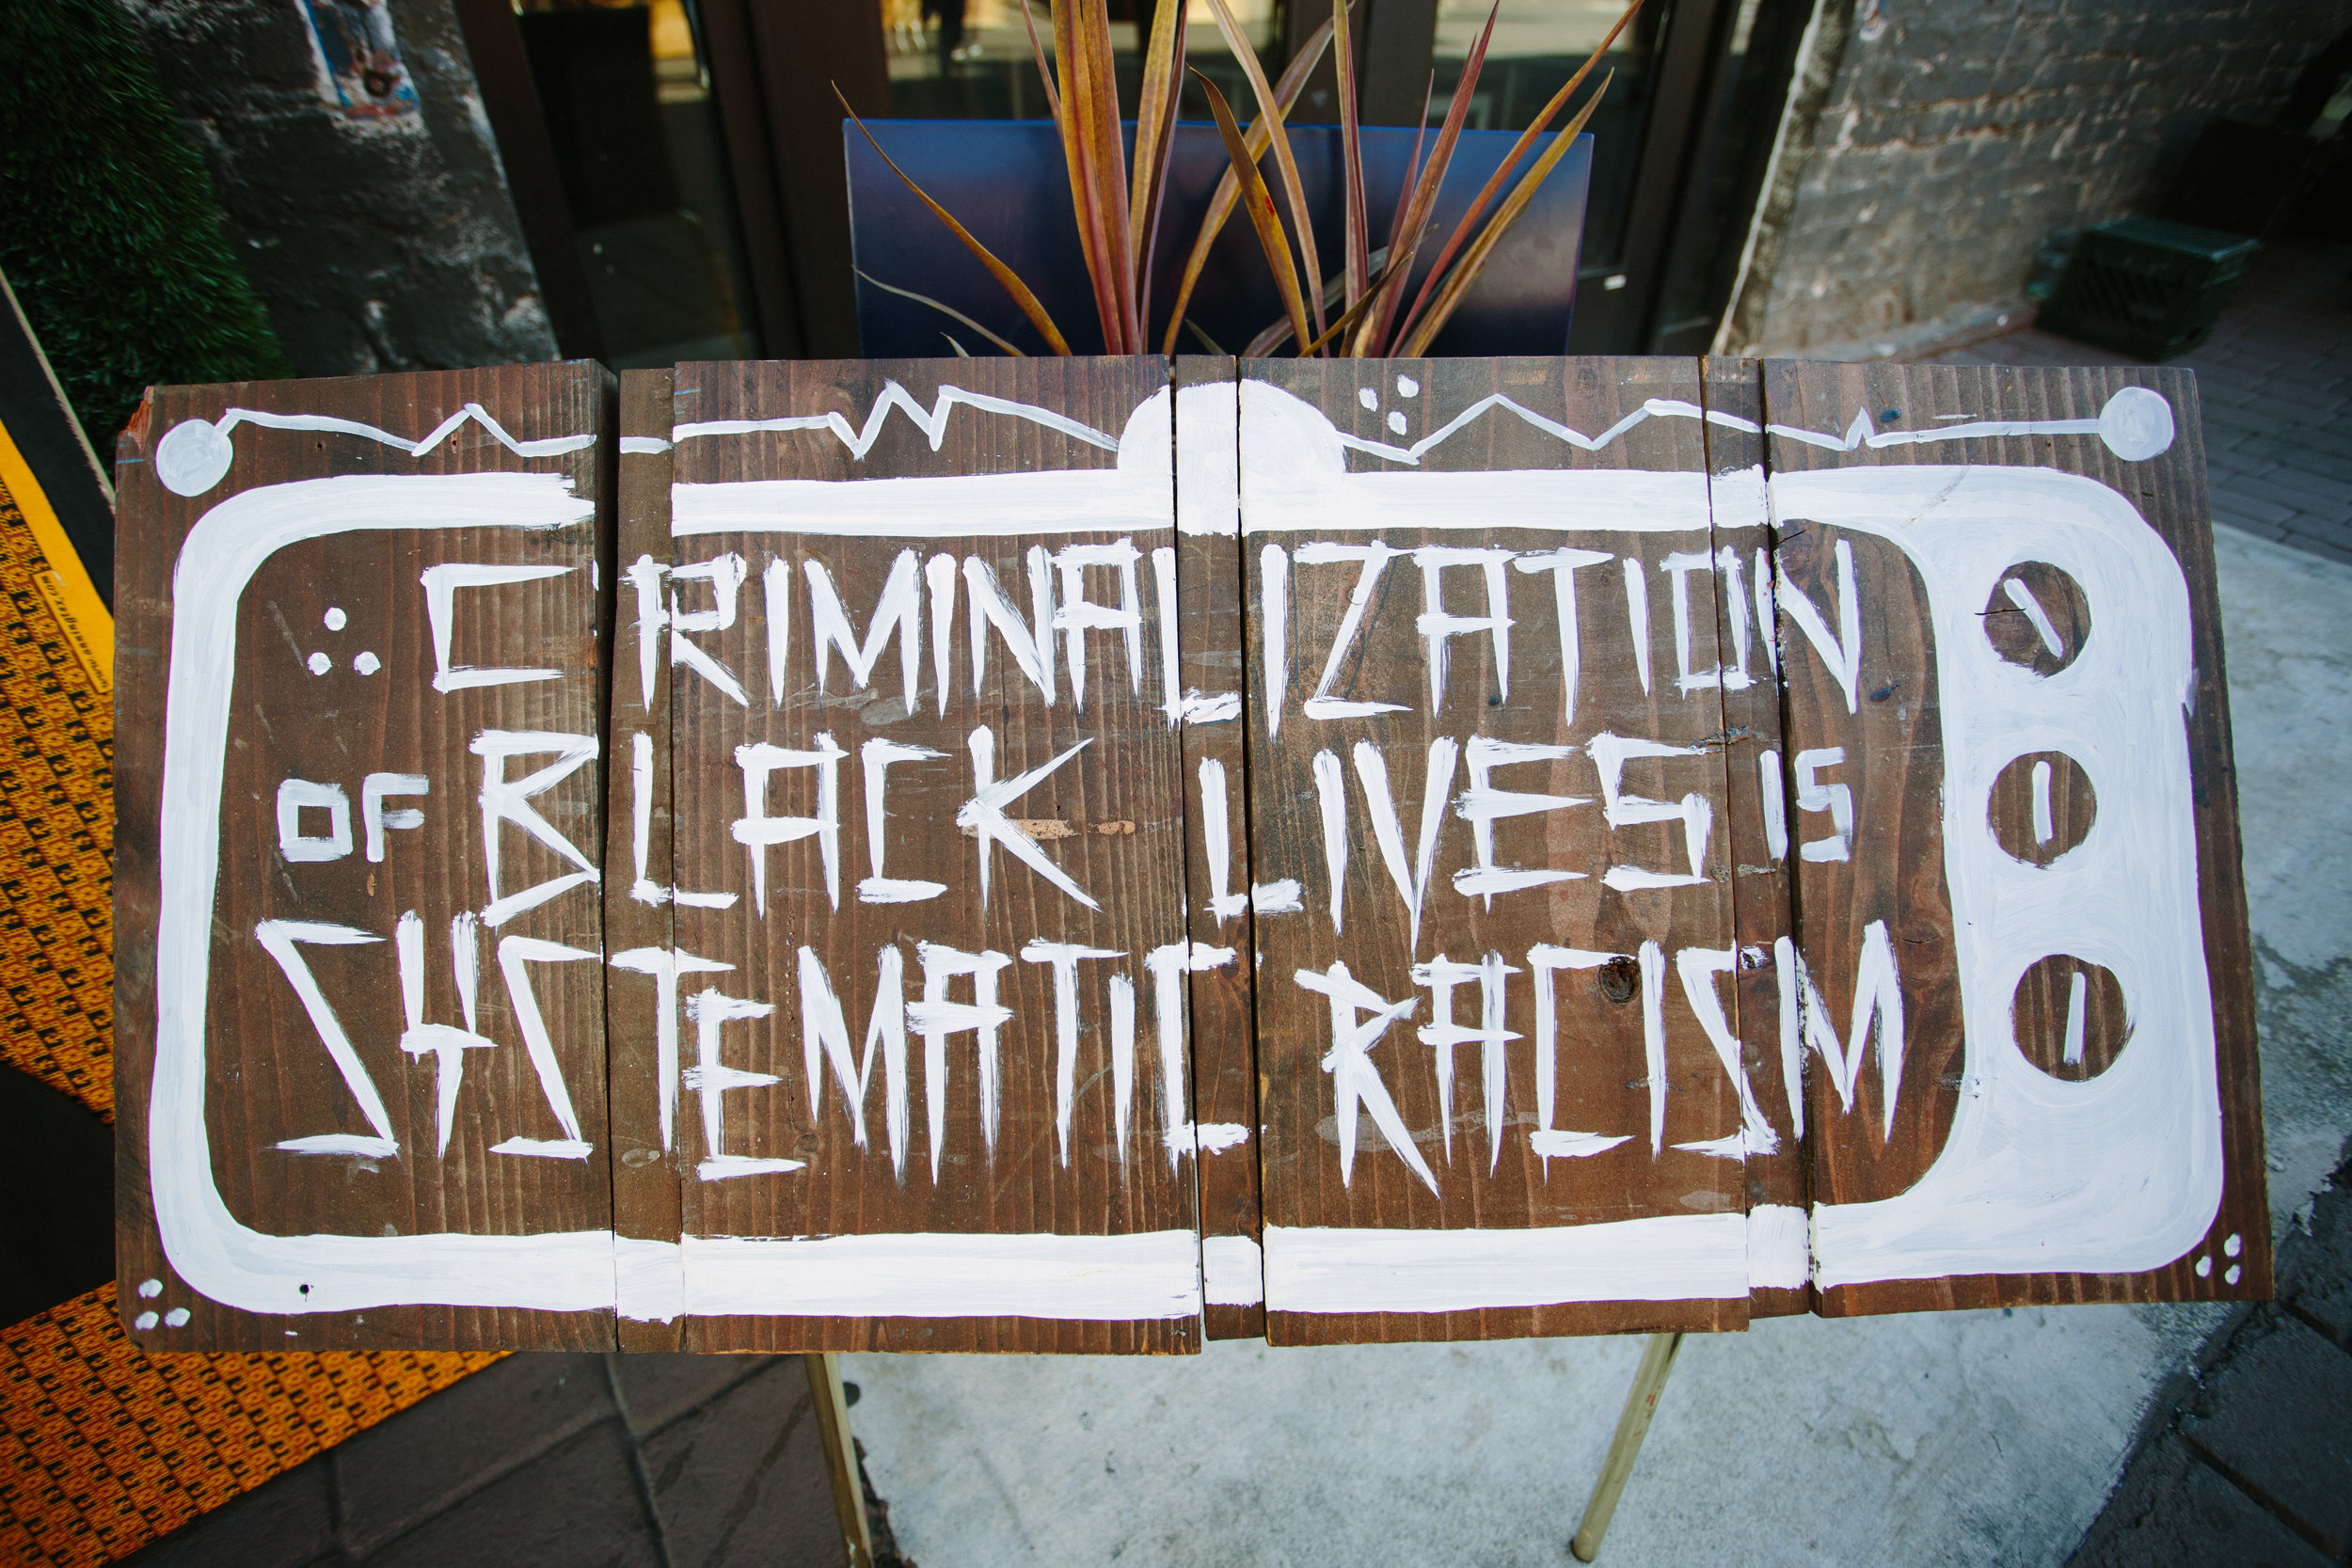 CRIMINALIZATION
OF BLACK LIVES IS
SYSTEMATIC RACISM